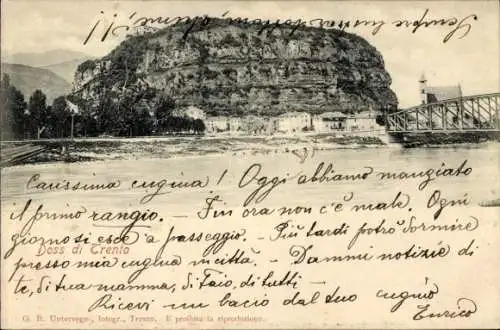 Carissima cugina! Oggi abbiamo mangiato
il primo rangio. Fin ora non c'è male. Ogni
giorno si esce a passeggio. Più tardi potrò dormire
Doss di Trento
presso mia cugina in città. Dammi notizie di
te, di tua mamma, di Taio, di tutti.
Ricevi un bacio dal tuo cugino
Enrico
G. B. Unterveger, fotogr., Trento. È proibita la riproduzione.